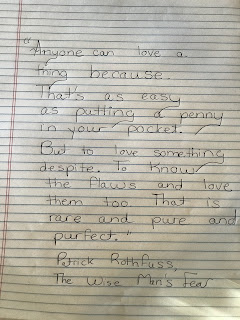 "Anyone can love a
thing because.
That's as easy
as putting a penny
in your pocket.
But to love something
despite. To know
the flaws and love
them too. That is
rare and pure and
purfect."
Patrick Rothfuss,
The Wise Man's Fear